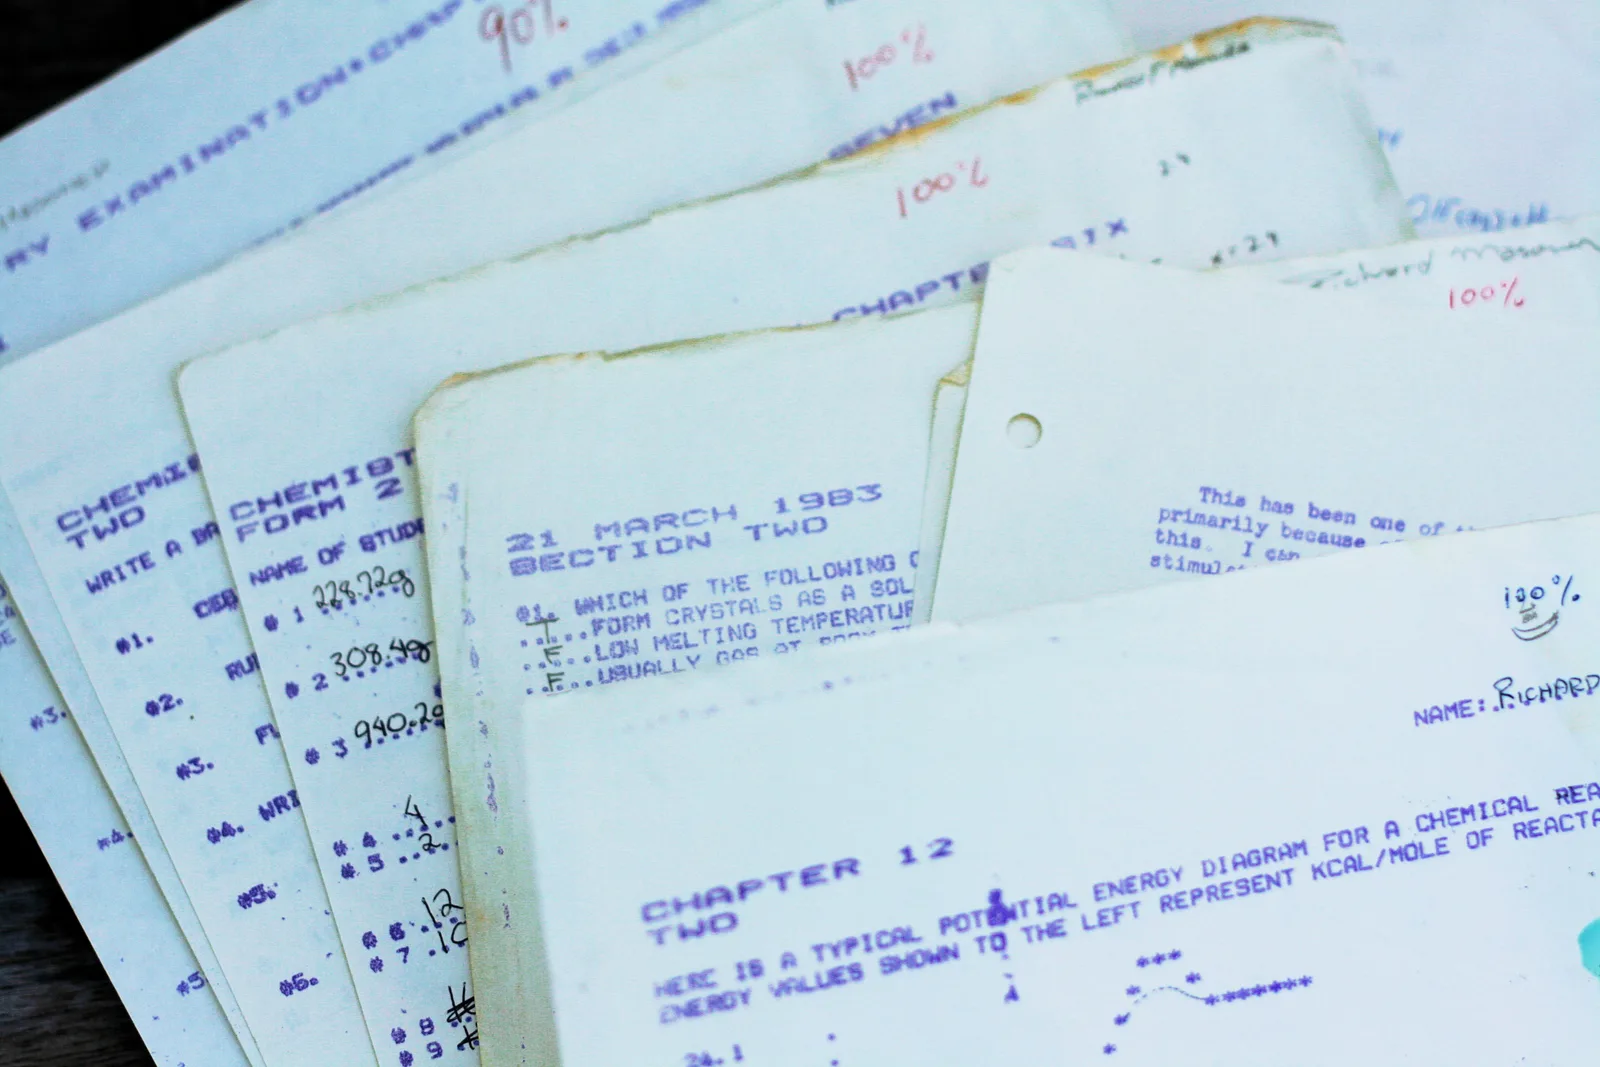 90%
RY EXAMINATION: CHAPT
100%
SEVEN
100%
29
SIX
CHAPTE
x=29
Richard
100%
CHEMIS
TWO
WRITE A BA
#1.
#2.
#3.
#4. WRI
#5.
#6.
#3.
#4.
#5
CHEMIST
FORM 2
NAME OF STUDE
# 1 228.72g
# 2 308.4g
# 3 940.2g
# 4 4
# 5 2
# 6 12
# 7
# 8
# 9
21 MARCH 1983
SECTION TWO
#1. WHICH OF THE FOLLOWING
T FORM CRYSTALS AS A SOL
F LOW MELTING TEMPERATUR
F USUALLY GAS AT ROOM
This has been one of
primarily because
this. I can
100%
NAME: RICHARD
CHAPTER 12
TWO
HERE IS A TYPICAL POTENTIAL ENERGY DIAGRAM FOR A CHEMICAL REA
ENERGY VALUES SHOWN TO THE LEFT REPRESENT KCAL/MOLE OF REACTA
24.1